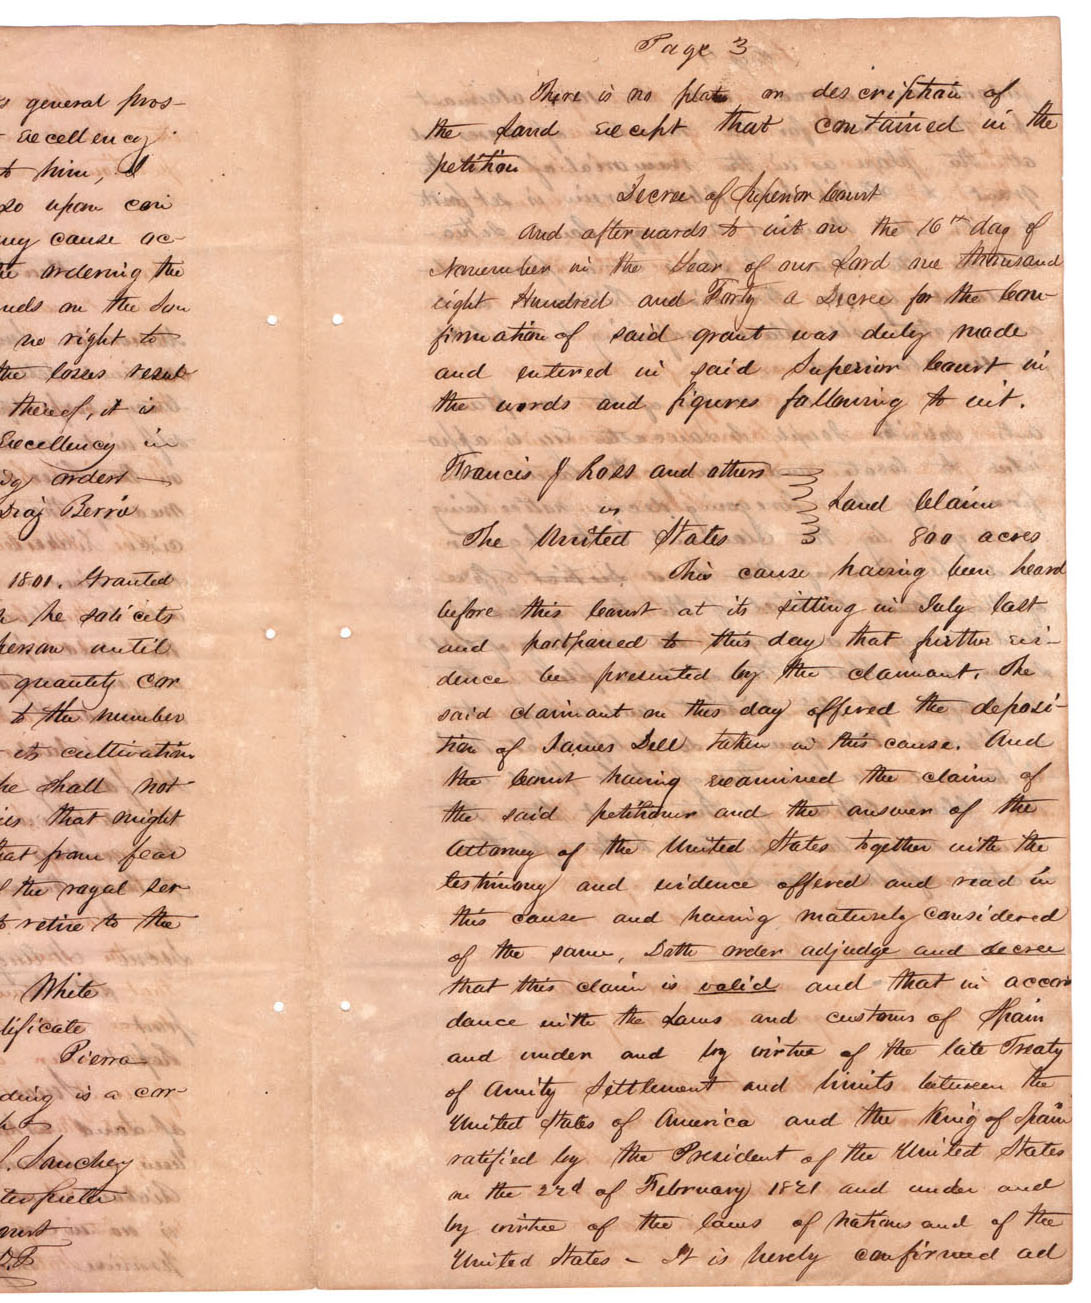 s general pros-
Excellency
to him, I
so upon con
my cause ac-
ordering the
nds on the Sun
no right to
the losses resul
thereof, it is
Excellency in
orders
Diaz Berrio
1801. Granted
he solicits
person until
quantity cor
to the number
its cultivation
he shall not
that might
hat from fear
of the royal ser
to retire to the
White
tificate
Pierra
ding is a cor-
Sanchez
Page 3
There is no plat or description of
the Land except that contained in the
petition
Decree of Superior Court
And afterwards to wit on the 16th day of
November in the Year of our Lord one thousand
eight Hundred and Forty a Decree for the Con-
firmation of said grant was duly made
and entered in said Superior Court in
the words and figures following to wit.
Francis J Ross and others
vs
Land Claim
The United States
800 acres
This cause having been heard
before this Court at its sitting in July last
and postponed to this day that further evi-
dence be presented by the claimant. The
said claimant on this day offered the deposi-
tion of James Dell taken in this cause. And
the Court having examined the claim of
the said petitioner and the answer of the
Attorney of the United States together with the
testimony and evidence offered and read in
this cause and having maturely considered
of the same, Doth order adjudge and decree
that this claim is valid and that in accor
dance with the Laws and customs of Spain
and under and by virtue of the late Treaty
of Amity Settlement and limits between the
United States of America and the King of Spain
ratified by the President of the United States
on the 22d of February 1821 and under and
by virtue of the laws of nations and of the
United States - It is hereby confirmed ad